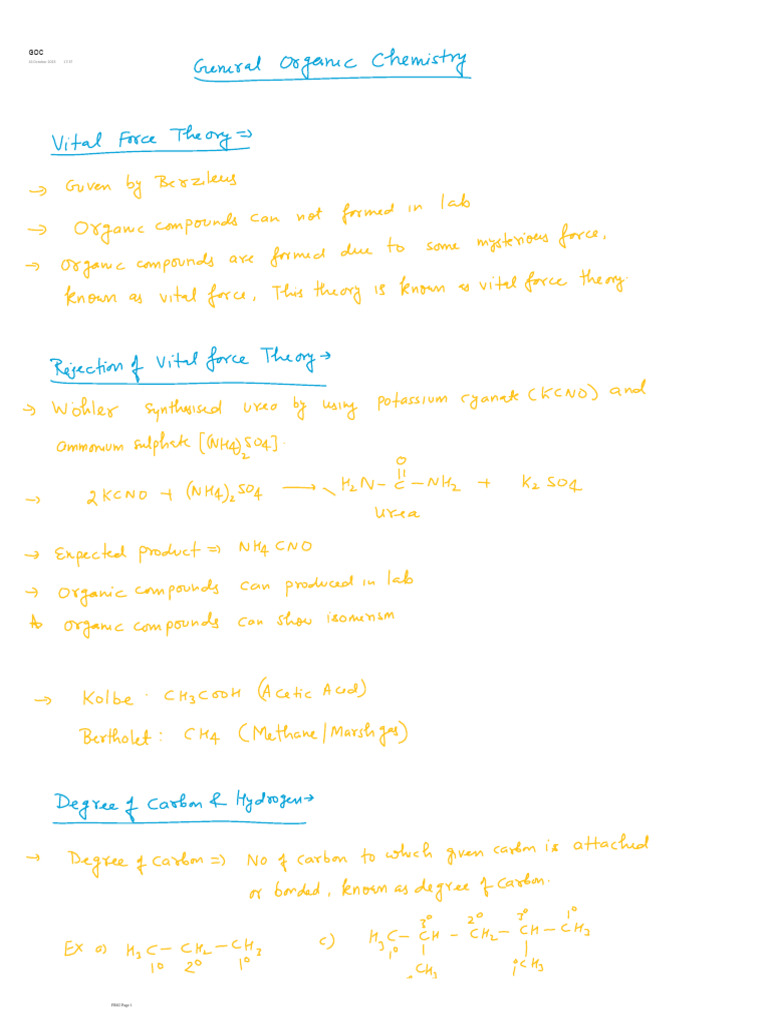 GOC
General Organic Chemistry
Vital Force Theory ⇒
→ Given by Berzileus
→ Organic compounds can not formed in lab
→ Organic compounds are formed due to some mysterious force,
known as vital force, This theory is known as vital force theory.
Rejection of Vital force Theory →
→ Wohler synthesised urea by using potassium cyanate (KCNO) and
Ammonium sulphate [(NH4)2SO4].
O
||
→ 2KCNO + (NH4)2SO4 → H2N-C-NH2 + K2SO4
Urea
→ Expected product ⇒ NH4CNO
→ Organic compounds can produced in lab
Organic compounds can show isomerism
→ Kolbe - CH3COOH (Acetic Acid)
Bertholet : CH4 (Methane/Marsh gas)
Degree of Carbon & Hydrogen →
→ Degree of carbon ⇒ No of carbon to which given carbon is attached
or bonded, known as degree of carbon.
3° 2° 3° 1°
Ex a) H3C-CH2-CH3 c) H3C-CH-CH2-CH-CH3
1° 2° 1° 1° | |
CH3 1°CH3
PBAU Page 1